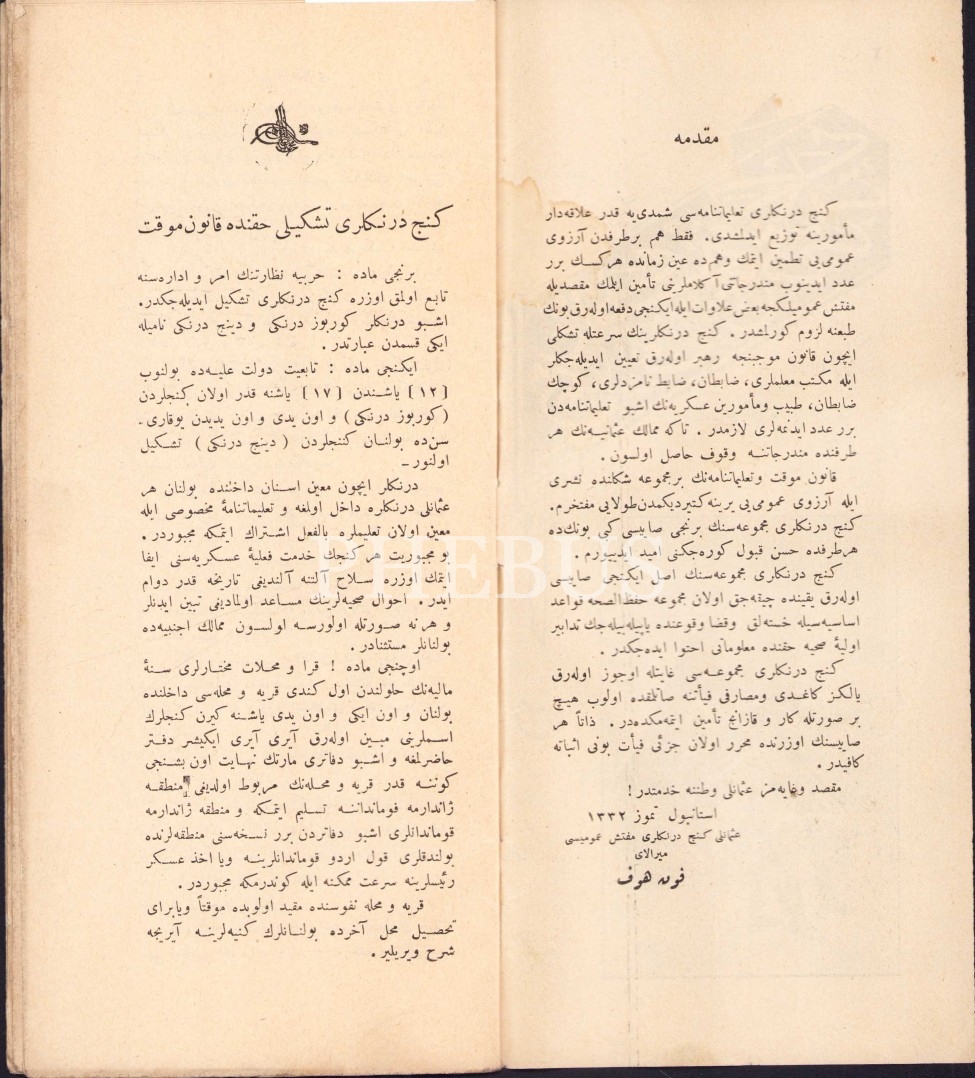 مقدمه
كنج درنكلری تعلیماتنامه‌سی شمدی‌یه قدر علاقه‌دار
مأمورینه توزیع ایدلمشدی. فقط هم بر طرفدن آرزوی
عمومی‌یی تطمین ایتمك وهم‌ده عین زمانده هركسك برر
عدد ایدینوب مندرجاتنی آكلاملرینی تأمین ایلمك مقصدیله
مفتش عمومیلكجه بعض علاوات ایله ایكنجی دفعه اوله‌رق بونك
طبعنه لزوم كورلمشدر. كنج درنكلرینك سرعتله تشكلی
ایچون قانون موجبنجه رهبر اوله‌رق تعیین ایدیله‌جكلر
ایله مكتب معلملری، ضابطان، ضابط نامزدلری، كوچك
ضابطان، طبیب ومأمورین عسكریه‌نك اشبو تعلیماتنامه‌دن
برر عدد ایدنمه‌لری لازمدر. تاكه ممالك عثمانیه‌نك هر
طرفنده مندرجاتنه وقوف حاصل اولسون.
قانون موقت وتعلیماتنامه‌نك برمجموعه شكلنده نشری
ایله آرزوی عمومی‌یی یرینه كتیردیكمدن طولایی مفتخرم.
كنج درنكلری مجموعه‌سنك برنجی صاییسی كبی بونك‌ده
هرطرفده حسن قبول كوره‌جكنی امید ایدییورم.
كنج درنكلری مجموعه‌سنك اصل ایكنجی صاییسی
اوله‌رق یقینده چیقه‌جق اولان مجموعه حفظ‌الصحه قواعد
اساسیه‌سیله خسته‌لق وقضا وقوعنده یاپیله‌بیله‌جك تدابیر
اولیهٔ صحیه حقنده معلوماتی احتوا ایده‌جكدر.
كنج درنكلری مجموعه‌سی غایتله اوجوز اوله‌رق
یالكز كاغدی ومصارفی فیأتنه صاتلمقده اولوب هیچ
بر صورتله كار و قازانج تأمین ایتمه‌مكده‌در. ذاتاً هر
صاییسنك اوزرنده محرر اولان جزئی فیأت بونی اثباته
كافیدر.
مقصد وغایه‌مز عثمانلی وطننه خدمتدر!
استانبول تموز ١٣٣٢
عثمانلی كنج درنكلری مفتش عمومیسی
میرالای
فون هوف
كنج درنكلری تشكیلی حقنده قانون موقت
برنجی ماده : حربیه نظارتنك امر و اداره‌سنه
تابع اولمق اوزره كنج درنكلری تشكیل ایدیله‌جكدر.
اشبو درنكلر كوربوز درنكی و دینج درنكی نامیله
ایكی قسمدن عبارتدر.
ایكنجی ماده : تابعیت دولت علیه‌ده بولنوب
[١٢] یاشندن [١٧] یاشنه قدر اولان كنجلردن
(كوربوز درنكی) و اون یدی و اون یدیدن یوقاری ـ
سن‌ده بولنان كنجلردن (دینج درنكی) تشكیل
اولنور ـ
درنكلر ایچون معین اسنان داخلنده بولنان هر
عثمانلی درنكلره داخل اولمغه و تعلیماتنامهٔ مخصوصی ایله
معین اولان تعلیملره بالفعل اشتراك ایتمكه مجبوردر.
بو مجبوریت هر كنجك خدمت فعلیهٔ عسكریه‌سنی ایفا
ایتمك اوزره سلاح آلتنه آلندیغی تاریخه قدر دوام
ایدر. احوال صحیه‌لرینك مساعد اولمادیغی تبین ایدنلر
و هر نه صورتله اولورسه اولسون ممالك اجنبیه‌ده
بولنانلر مستثنادر.
اوچنجی ماده ! قرا و محلات مختارلری سنهٔ
مالیه‌نك حلولندن اول كندی قریه و محله‌سی داخلنده
بولنان و اون ایكی و اون یدی یاشنه كیرن كنجلرك
اسملرینی مبین اوله‌رق آیری آیری ایكیشر دفتر
حاضرلمغه و اشبو دفاتری مارتك نهایت اون بشنجی
كوننه قدر قریه و محله‌نك مربوط اولدیغی منطقه
ژاندارمه قومانداننه تسلیم ایتمكه و منطقه ژاندارمه
قوماندانلری اشبو دفاتردن برر نسخه‌سنی منطقه‌لرنده
بولندقلری قول اردو قوماندانلرینه ویا اخذ عسكر
رئیسلرینه سرعت ممكنه ایله كوندرمكه مجبوردر.
قریه و محله نفوسنده مقید اولوبده موقتاً ویابرای
تحصیل محل آخرده بولنانلرك كنیه‌لرینه آیریجه
شرح ویریلیر.
PHEBUS